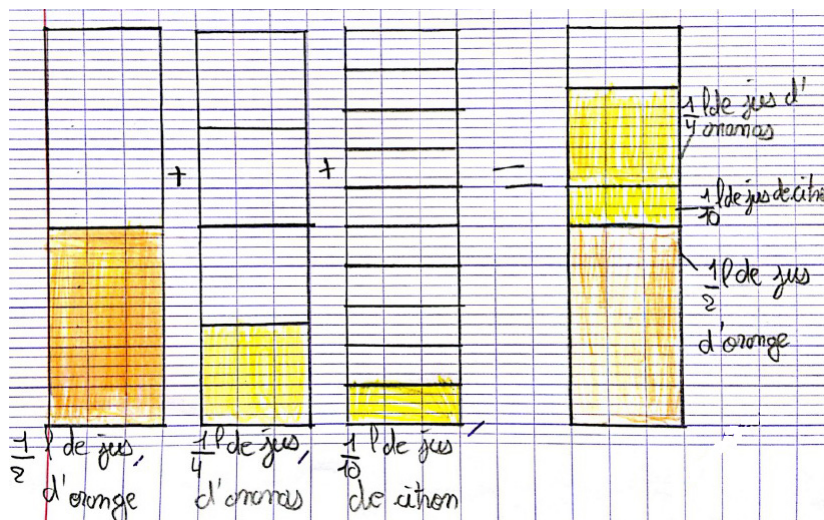 + + =
1/4 l de jus d'
ananas
1/10 l de jus de citro
1/2 l de jus
d'orange
1/2 l de jus,
d'orange
1/4 l de jus,
d'ananas
1/10 l de jus
de citron